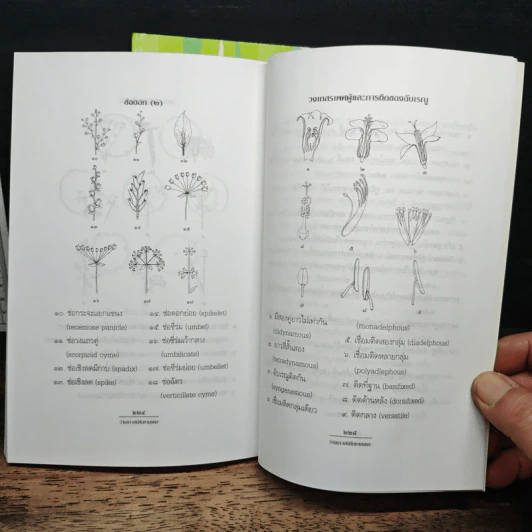 ช่อดอก (๒)
๑๐ ๑๑ ๑๒
๑๓ ๑๔ ๑๕
๑๖ ๑๗ ๑๘
๑๐. ช่อกระจะแยกแขนง
(racemose panicle)
๑๑. ช่อวงแถวคู่
(scorpioid cyme)
๑๒. ช่อเชิงลดมีกาบ (spadix)
๑๓. ช่อเชิงลด (spike)
๑๔. ช่อดอกย่อย (spikelet)
๑๕. ช่อซี่ร่ม (umbel)
๑๖. ช่อซี่ร่มเว้ากลาง
(umbilicate)
๑๗. ช่อซี่ร่มย่อย (umbellet)
๑๘. ช่อฉัตร
(verticillate cyme)
๒๒๔
วงเกสรเพศผู้และการติดของอับเรณู
๑ ๒ ๓
๔ ๕ ๖
๗ ๘ ๙
๑. มีสองคู่ยาวไม่เท่ากัน
(didynamous)
๒. ยาวสี่สั้นสอง
(tetradynamous)
๓. อับเรณูติดกัน
(syngenesious)
๔. เชื่อมติดกลุ่มเดียว
(monadelphous)
๕. เชื่อมติดสองกลุ่ม (diadelphous)
๖. เชื่อมติดหลายกลุ่ม
(polyadlephous)
๗. ติดที่ฐาน (basifixed)
๘. ติดด้านหลัง (dorsifixed)
๙. ติดกลาง (versatile)
๒๒๕